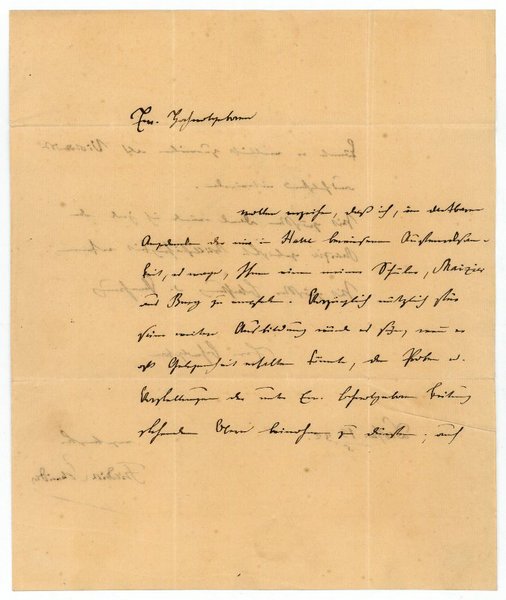 Ew. Hochwohlgeboren
wollen verzeihen, daß ich, im dankbaren
Andenken der mir in Halle bewiesenen Aufmerksam-
keit, es wage, Ihnen einen meiner Schüler,
aus Burg zu empfehlen. Vorzüglich nützlich für
seine weitere Ausbildung würde es seyn, wenn er
oft Gelegenheit erhalten könnte, den Proben u.
Vorstellungen der unter Ew. Hochwohlgeboren Leitung
stehenden Oper beiwohnen zu dürfen; auch